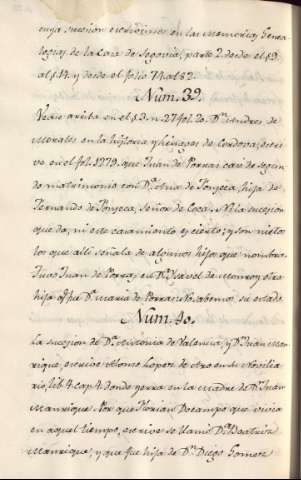 cuya sucesion escriuimos en las Memorias Genea
logicas de la Casa de Segovia, parte 2. desde el §9.
al §14. y desde el folio 71 al 82.
Num. 39.
Vease arriba en el §3. n. 27 fol. 20. Dn. Andres de
Morales en la historia y linages de Cordova, escri
ve en el fol. 1279. que Juan de Porras casó de segun
do matrimonio con Da. Ana de Fonseca, hija de
Fernando de Fonseca, Señor de Coca. Ni la sucesion
que da, ni este casamiento es cierto; y son nietos
los que alli señala de algunos hijos que nombra.
Tuvo Juan de Porras, en Da. Isavel de Monroy otra
hija q. fue Da. Maria de Porras. No sabemos su estado
Núm. 40.
La sucesion de Da. Aldonza de Valencia, y Dn. Juan Man
rique, escrive Alonso Lopez de Aro en su Nobilia
rio, lib. 4. cap. 4. donde yerra en la Madre de Dn. Juan
Manrique. Por que Florian Docampo que vivia
en aquel tiempo, escrive se llamó Da. Beatriz
Manrique, y que fue hija de Dn. Diego Gomez